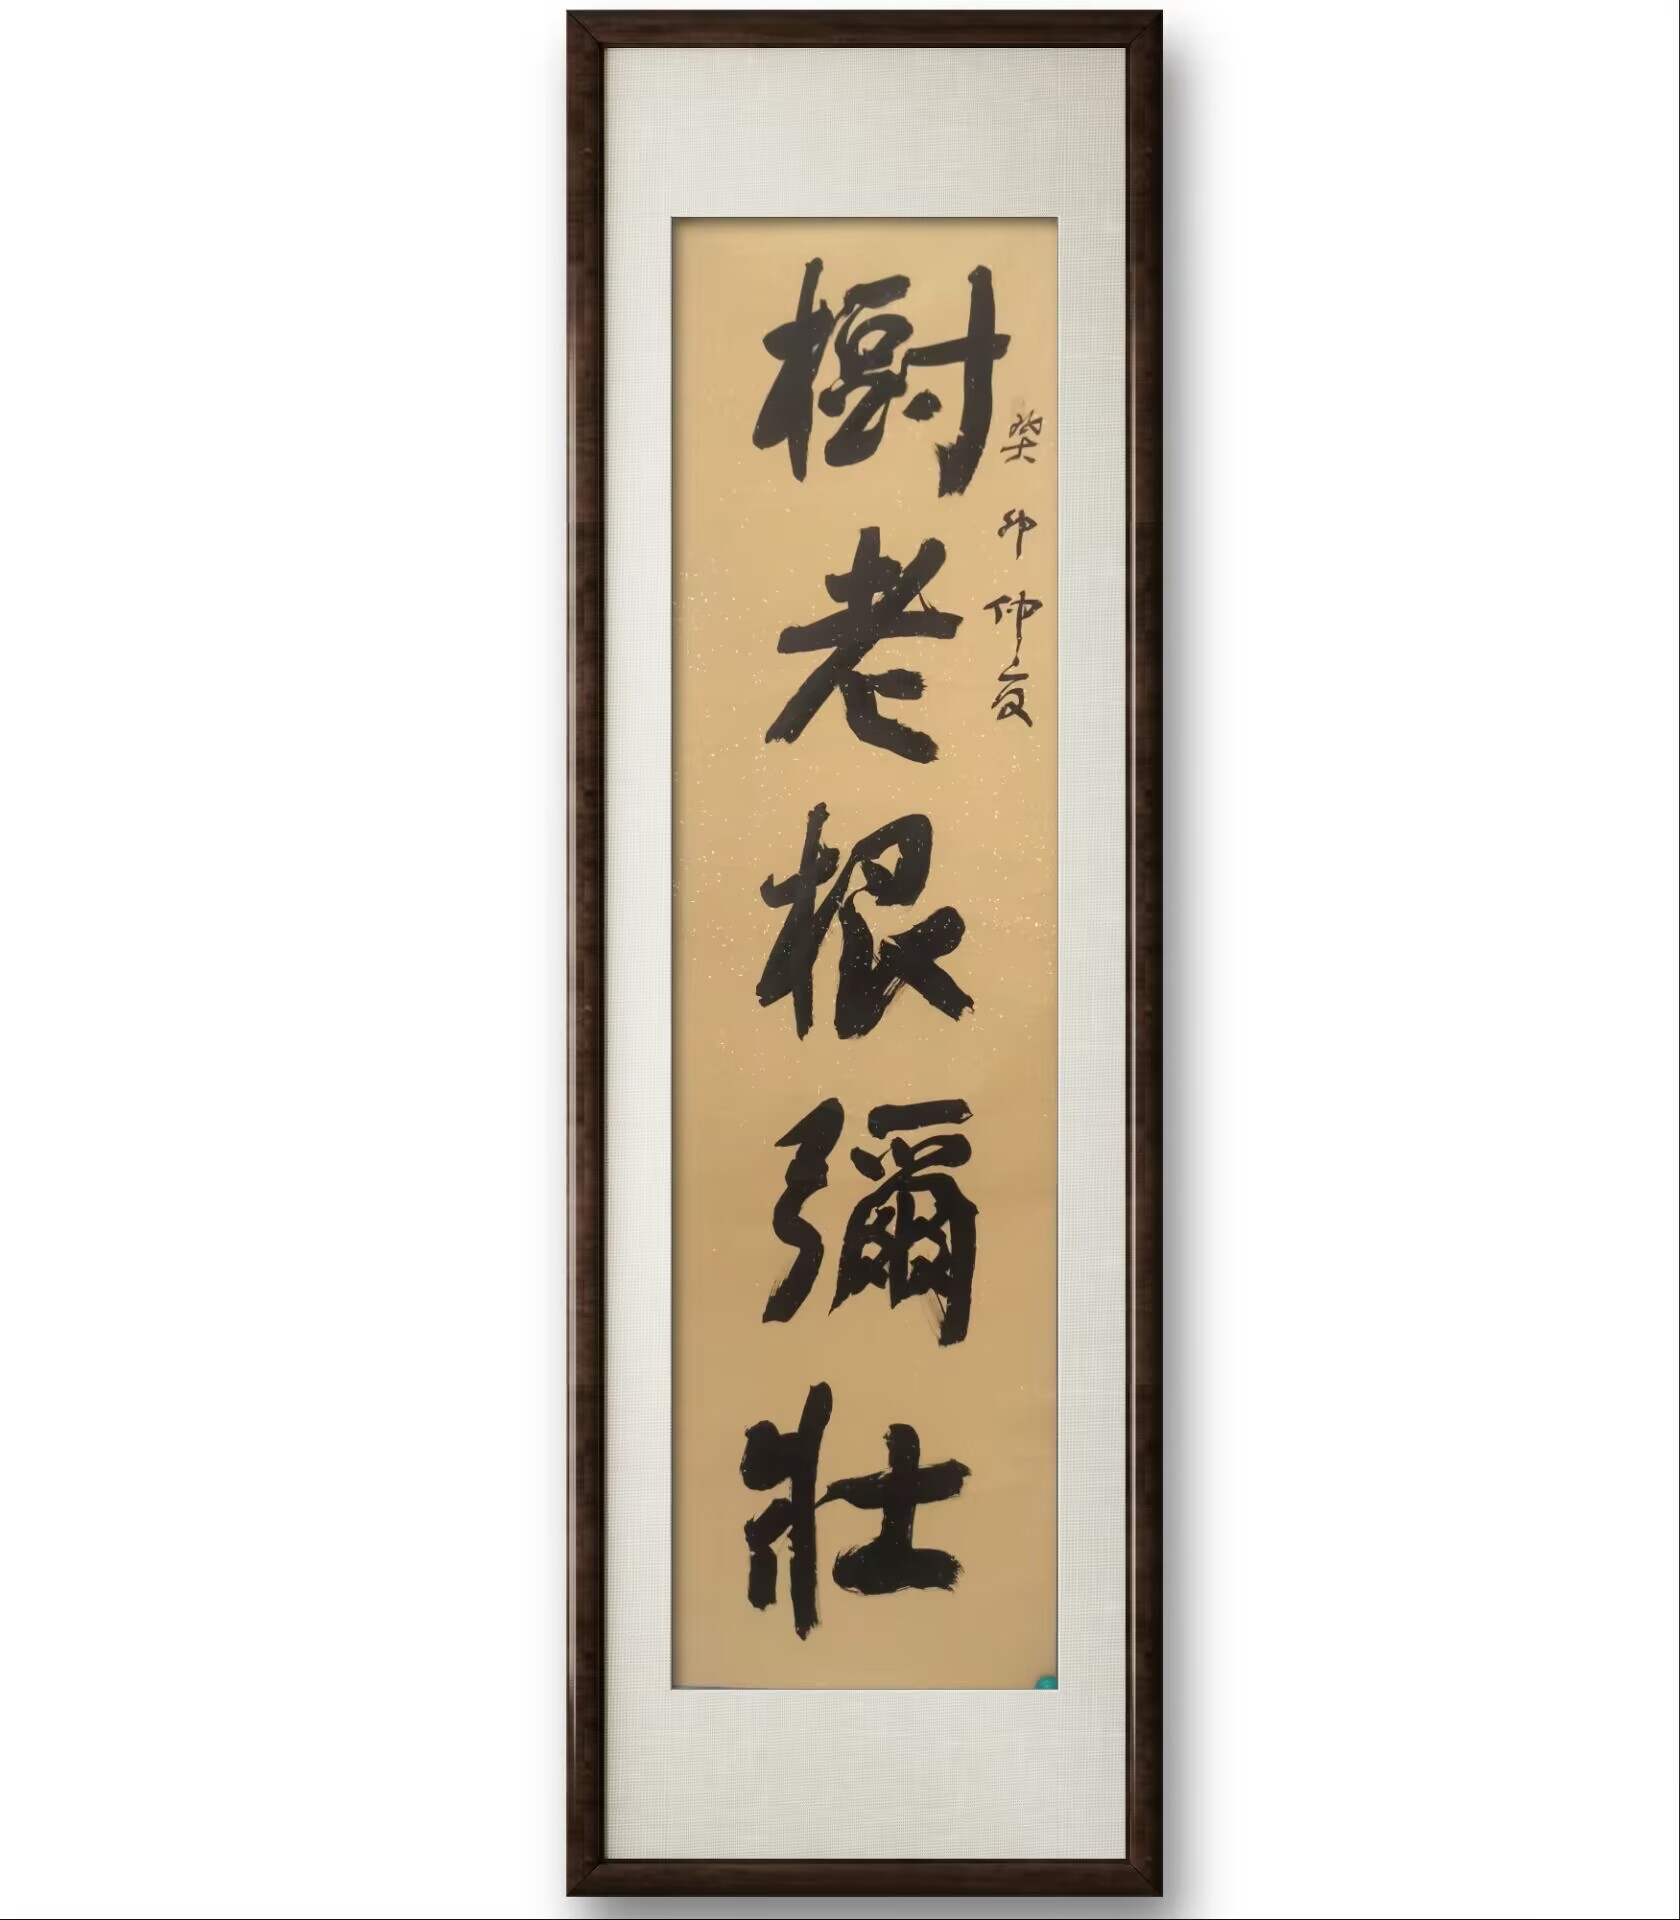 癸卯仲夏
樹老根彌壯